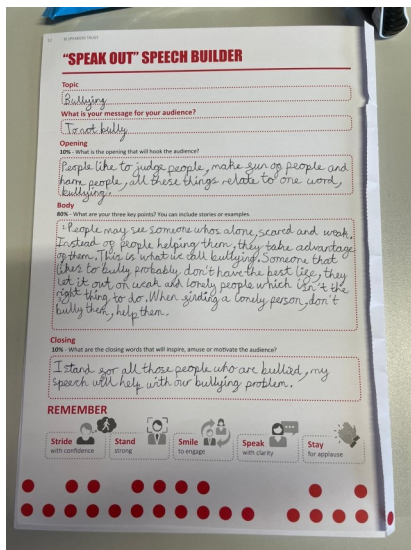 52
SPEAKERS TRUST
"SPEAK OUT" SPEECH BUILDER
Topic
Bullying
What is your message for your audience?
To not bully
Opening
10% - What is the opening that will hook the audience?
People like to judge people, make fun of people and
harm people, all these things relate to one word,
bullying.
Body
80% - What are your three key points? You can include stories or examples.
People may see someone whos alone, scared and weak.
Instead of people helping them, they take advantage
of them. This is what we call bullying. Someone that
likes to bully probably don't have the best life, they
let it out on weak and lonely people which isn't the
right thing to do. When finding a lonely person, don't
bully them, help them.
Closing
10% - What are the closing words that will inspire, amuse or motivate the audience?
I stand for all those people who are bullied, my
speech will help with our bullying problem.
REMEMBER
Stride
with confidence
Stand
strong
Smile
to engage
Speak
with clarity
Stay
for applause